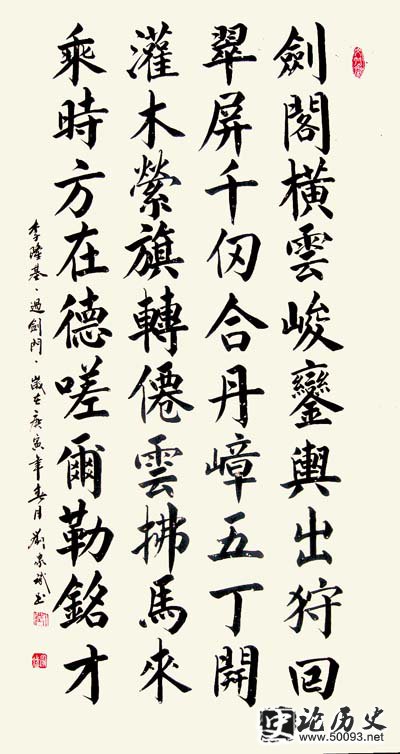 劍閣橫雲峻鑾輿出狩回
翠屏千仞合丹嶂五丁開
灌木縈旗轉僊雲拂馬來
乘時方在德嗟爾勒銘才
李隆基·過劍門·歲在庚寅年春月劉
史论历史
www.50093.net